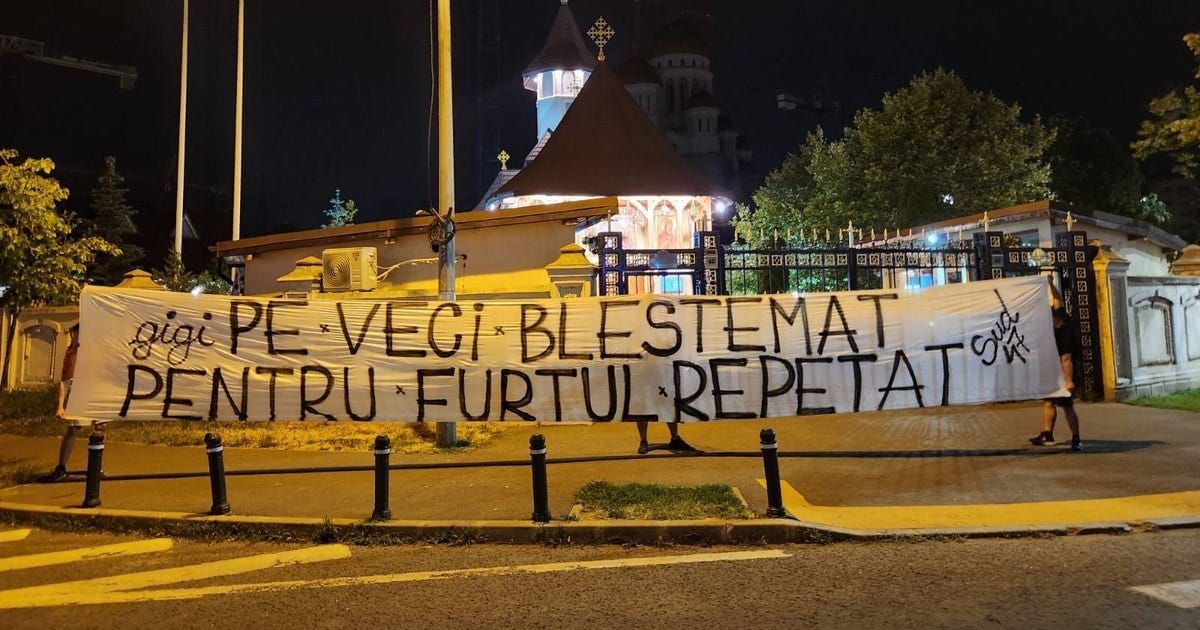 gigi PE VECI BLESTEMAT
PENTRU FURTUL REPETAT
Sud 47